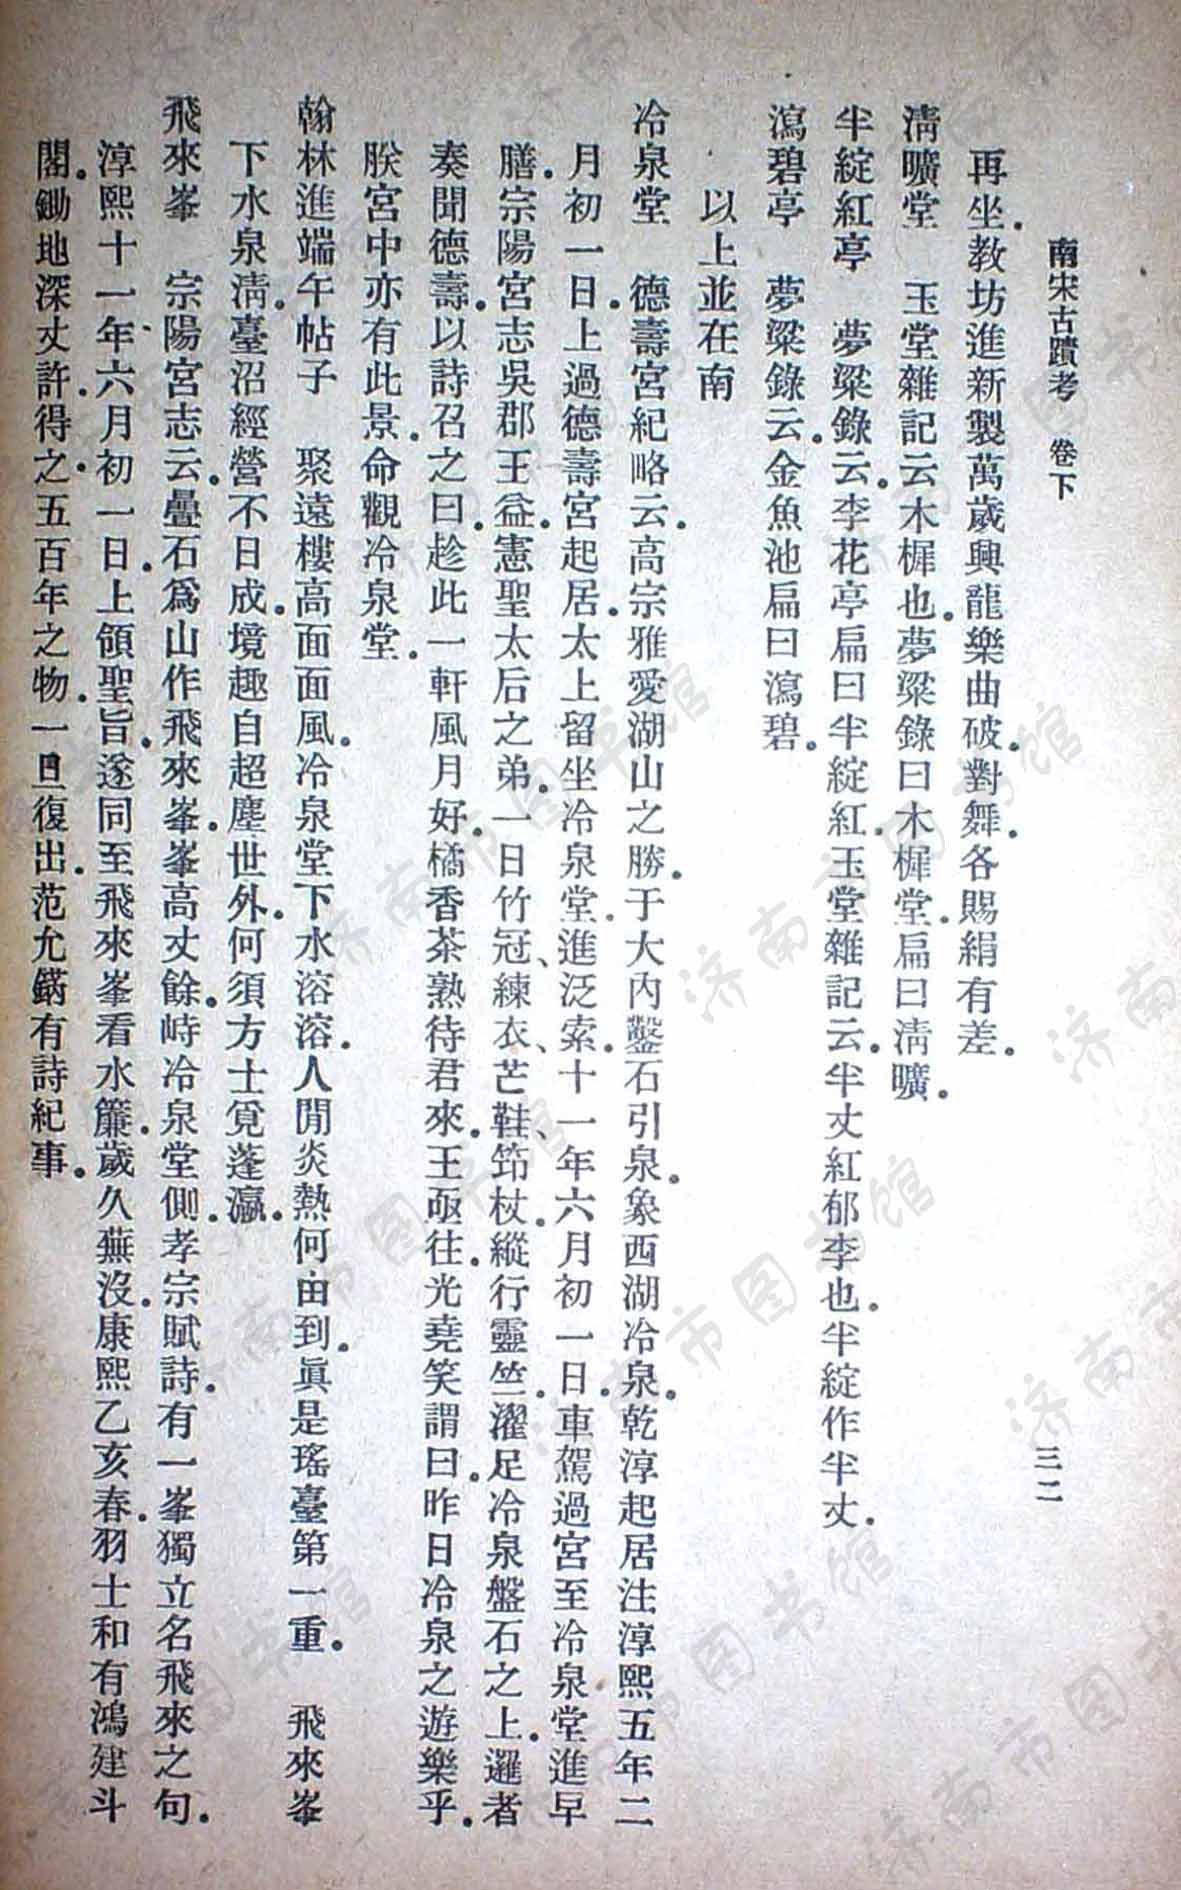 南宋古蹟考 卷下 三二
再坐。教坊進新製萬歲興龍樂曲破。對舞。各賜絹有差。
淸曠堂 玉堂雜記云。木樨也。夢粱錄曰木樨堂。扁曰淸曠。
半綻紅亭 夢粱錄云。李花亭扁曰半綻紅。玉堂雜記云。半丈紅郁李也。半綻作半丈。
瀉碧亭 夢粱錄云。金魚池扁曰瀉碧。
以上並在南
冷泉堂 德壽宮紀略云。高宗雅愛湖山之勝。于大內鑿石引泉。象西湖冷泉。乾淳起居注淳熙五年二
月初一日。上過德壽宮起居。太上留坐冷泉堂。進泛索。十一年六月初一日。車駕過宮至冷泉堂進早
膳。宗陽宮志吳郡王益。憲聖太后之弟。一日竹冠、練衣、芒鞋、笻杖。縱行靈竺。濯足冷泉盤石之上。邏者
奏聞德壽。以詩召之曰。趁此一軒風月好。橘香茶熟待君來。王亟往。光堯笑謂曰。昨日冷泉之遊樂乎。
朕宮中亦有此景。命觀冷泉堂。
翰林進端午帖子 聚遠樓高面面風。冷泉堂下水溶溶。人閒炎熱何由到。眞是瑤臺第一重。 飛來峯
下水泉淸。臺沼經營不日成。境趣自超塵世外。何須方士覓蓬瀛。
飛來峯 宗陽宮志云。疊石爲山作飛來峯。峯高丈餘。峙冷泉堂側。孝宗賦詩。有一峯獨立名飛來之句。
淳熙十一年六月初一日。上領聖旨。遂同至飛來峯看水簾。歲久蕪沒。康熙乙亥春。羽士和有鴻建斗
閣。鋤地深丈許。得之。五百年之物。一旦復出。范允鋿有詩紀事。